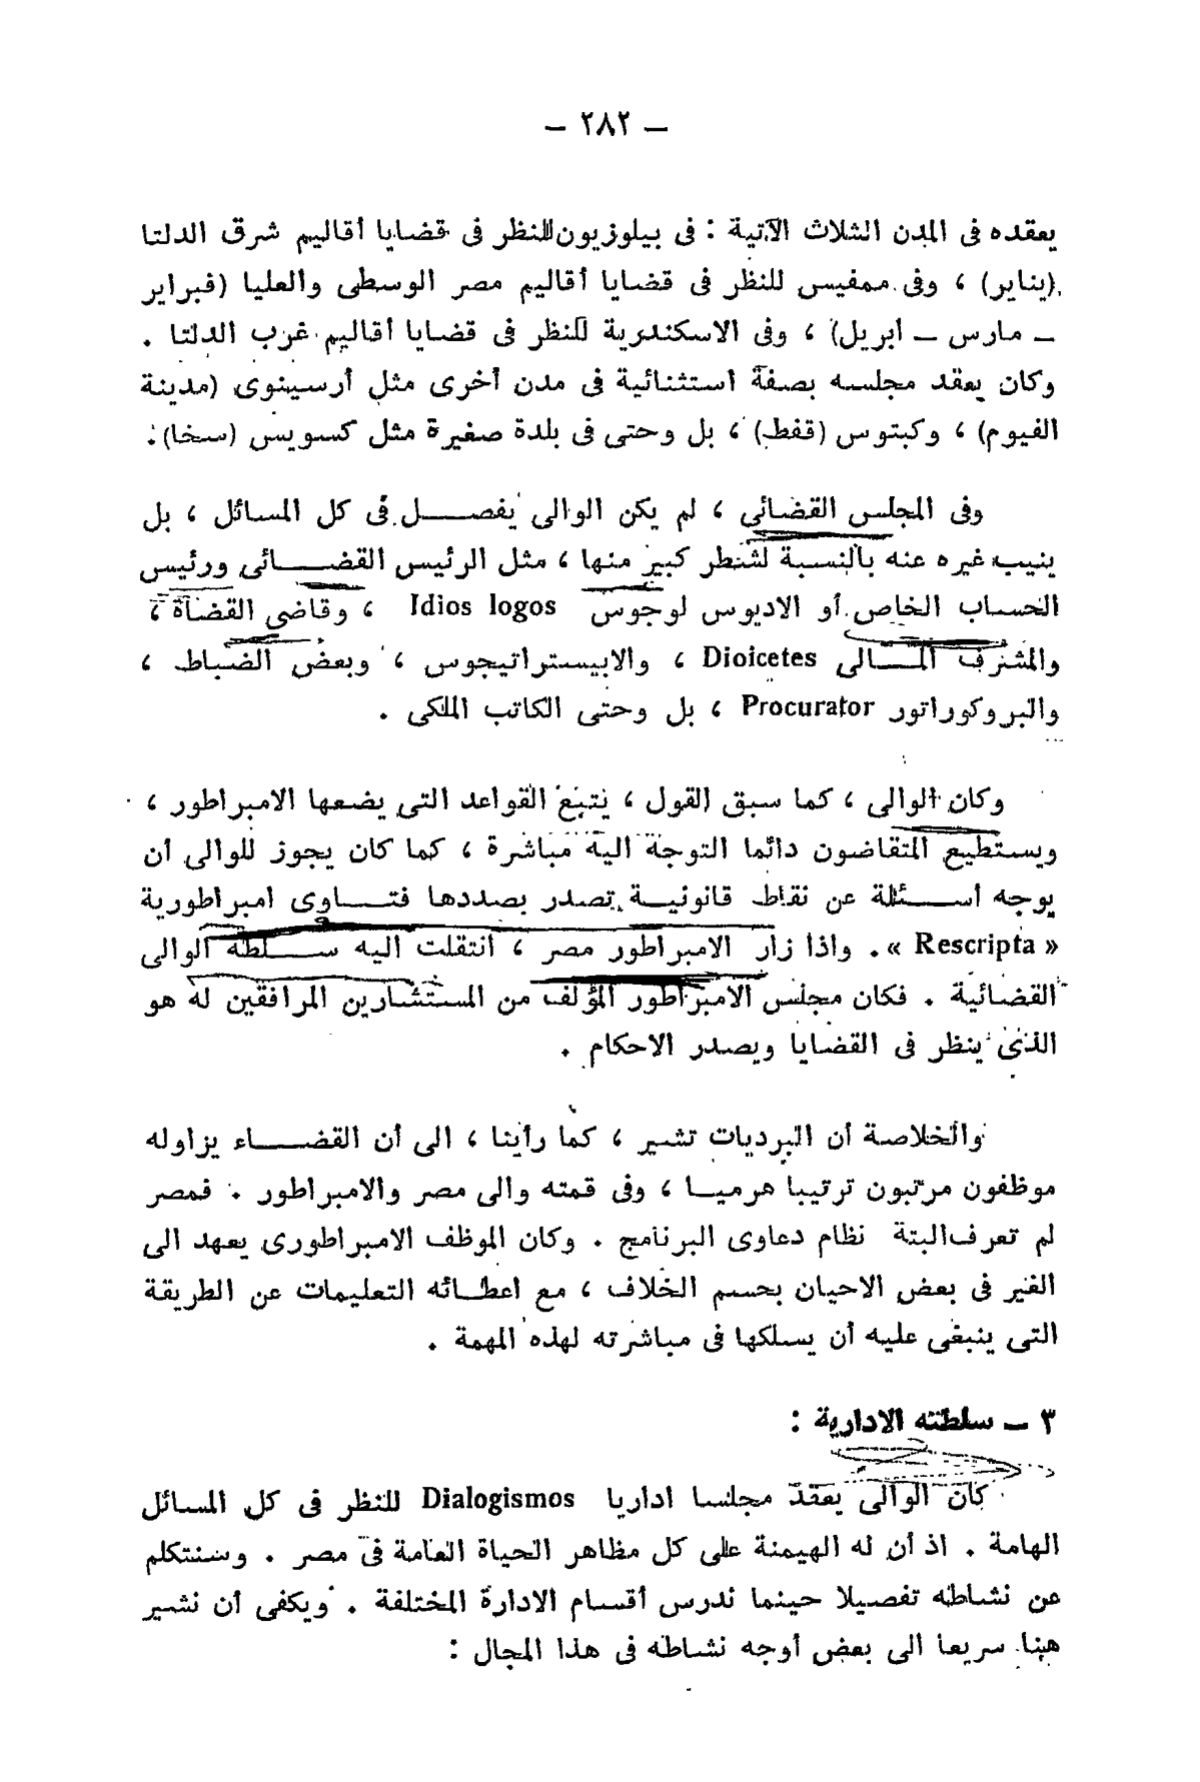 — ٢٨٢ —
يعقده فى المدن الثلاث الآتية : فى بيلوزيون للنظر فى قضايا أقاليم شرق الدلتا
(يناير) ، وفى ممفيس للنظر فى قضايا أقاليم مصر الوسطى والعليا (فبراير
— مارس — ابريل) ، وفى الاسكندرية للنظر فى قضايا أقاليم غرب الدلتا .
وكان يعقد مجلسه بصفة استثنائية فى مدن أخرى مثل أرسينوى (مدينة
الفيوم) ، وكبتوس (قفط) ، بل وحتى فى بلدة صغيرة مثل كسويس (سخا).
وفى المجلس القضائى ، لم يكن الوالى يفصل فى كل المسائل ، بل
ينيب غيره عنه بالنسبة لشطر كبير منها ، مثل الرئيس القضائى ورئيس
الحساب الخاص أو الاديوس لوجوس Idios logos ، وقاضى القضاة ،
والمشرف المالى Dioicetes ، والابيستراتيجوس ، وبعض الضباط ،
والبروكوراتور Procurator ، بل وحتى الكاتب الملكى .
وكان الوالى ، كما سبق القول ، يتبع القواعد التى يضعها الامبراطور ،
ويستطيع المتقاضون دائما التوجة اليه مباشرة ، كما كان يجوز للوالى أن
يوجه أسئلة عن نقاط قانونية تصدر بصددها فتاوى امبراطورية
« Rescripta » . واذا زار الامبراطور مصر ، انتقلت اليه سلطة الوالى
القضائية . فكان مجلس الامبراطور المؤلف من المستشارين المرافقين له هو
الذى ينظر فى القضايا ويصدر الاحكام .
والخلاصة أن البرديات تشير ، كما رأينا ، الى أن القضاء يزاوله
موظفون مرتبون ترتيبا هرميا ، وفى قمته والى مصر والامبراطور . فمصر
لم تعرف البتة نظام دعاوى البرنامج . وكان الموظف الامبراطورى يعهد الى
الغير فى بعض الاحيان بحسم الخلاف ، مع اعطائه التعليمات عن الطريقة
التى ينبغى عليه أن يسلكها فى مباشرته لهذه المهمة .
٣ — سلطته الادارية :
كان الوالى يعقد مجلسا اداريا Dialogismos للنظر فى كل المسائل
الهامة . اذ أن له الهيمنة على كل مظاهر الحياة العامة فى مصر . وسنتكلم
عن نشاطه تفصيلا حينما ندرس أقسام الادارة المختلفة . ويكفى أن نشير
هنا سريعا الى بعض أوجه نشاطه فى هذا المجال :